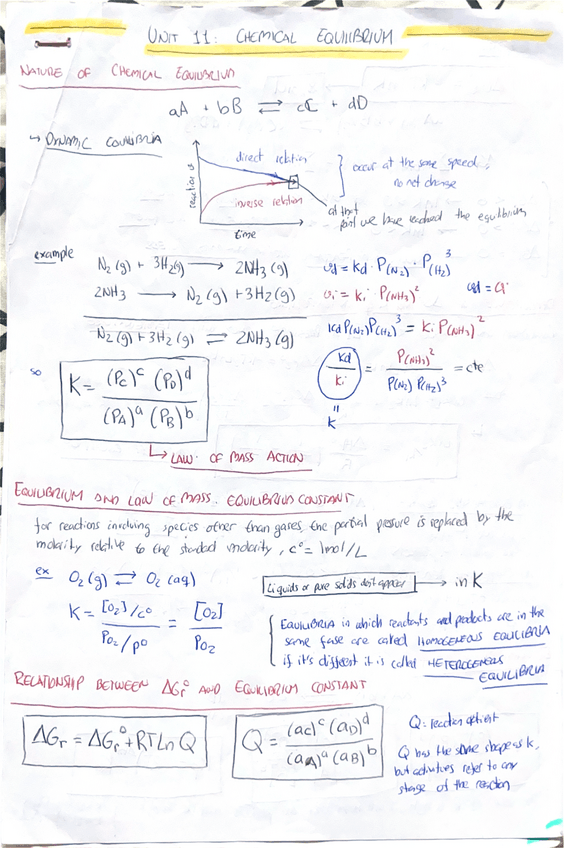 UNIT 11: CHEMICAL EQUILIBRIUM
NATURE OF CHEMICAL EQUILIBRIUM
aA + bB ⇌ cC + dD
↳ DYNAMIC EQUILIBRIA
reaction v
direct relation
inverse relation
time
occur at the same speed;
no not change
at that
point we have reached the equilibrium
example
N₂(g) + 3H₂(g) ⟶ 2NH₃(g)
vd = kd · P(N₂) · P(H₂)³
2NH₃ ⟶ N₂(g) + 3H₂(g)
vi = ki · P(NH₃)²
vd = vi
N₂(g) + 3H₂(g) ⇌ 2NH₃(g)
kd P(N₂) P(H₂)³ = ki P(NH₃)²
kd/ki = P(NH₃)² / P(N₂) P(H₂)³ = cte
=
K
so
K = (Pc)ᶜ (PD)ᵈ / (PA)ᵃ (PB)ᵇ
↳ LAW OF MASS ACTION
EQUILIBRIUM AND LAW OF MASS. EQUILIBRIUM CONSTANT
for reactions involving species other than gases, the partial pressure is replaced by the
molarity relative to the standard molarity, c° = 1mol/L
ex O₂(g) ⇌ O₂(aq)
Liquids or pure solids don't appear → in K
K = [O₂]/c° / PO₂/p° = [O₂] / PO₂
EQUILIBRIA in which reactants and products are in the
same fase are called HOMOGENEOUS EQUILIBRIA
if it's different it is called HETEROGENEOUS
EQUILIBRIA
RELATIONSHIP BETWEEN ΔGr° AND EQUILIBRIUM CONSTANT
ΔGr = ΔGr° + RT Ln Q
Q = (ac)ᶜ (aD)ᵈ / (aA)ᵃ (aB)ᵇ
Q = reaction
Q has the same shape as k,
but activities refer to any
stage of the reaction